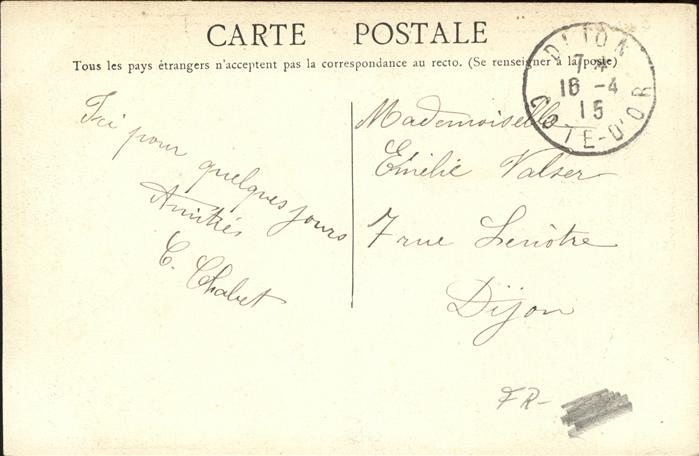 CARTE POSTALE
Tous les pays étrangers n'acceptent pas la correspondance au recto. (Se renseigner à la poste)
Ici pour quelques jours
Amitiés
C. Chabet
Mademoiselle
Emélie Valser
7 rue Lenôtre
Dijon
DIJON
7 *
16 -4
15
COTE-D'OR
FR-